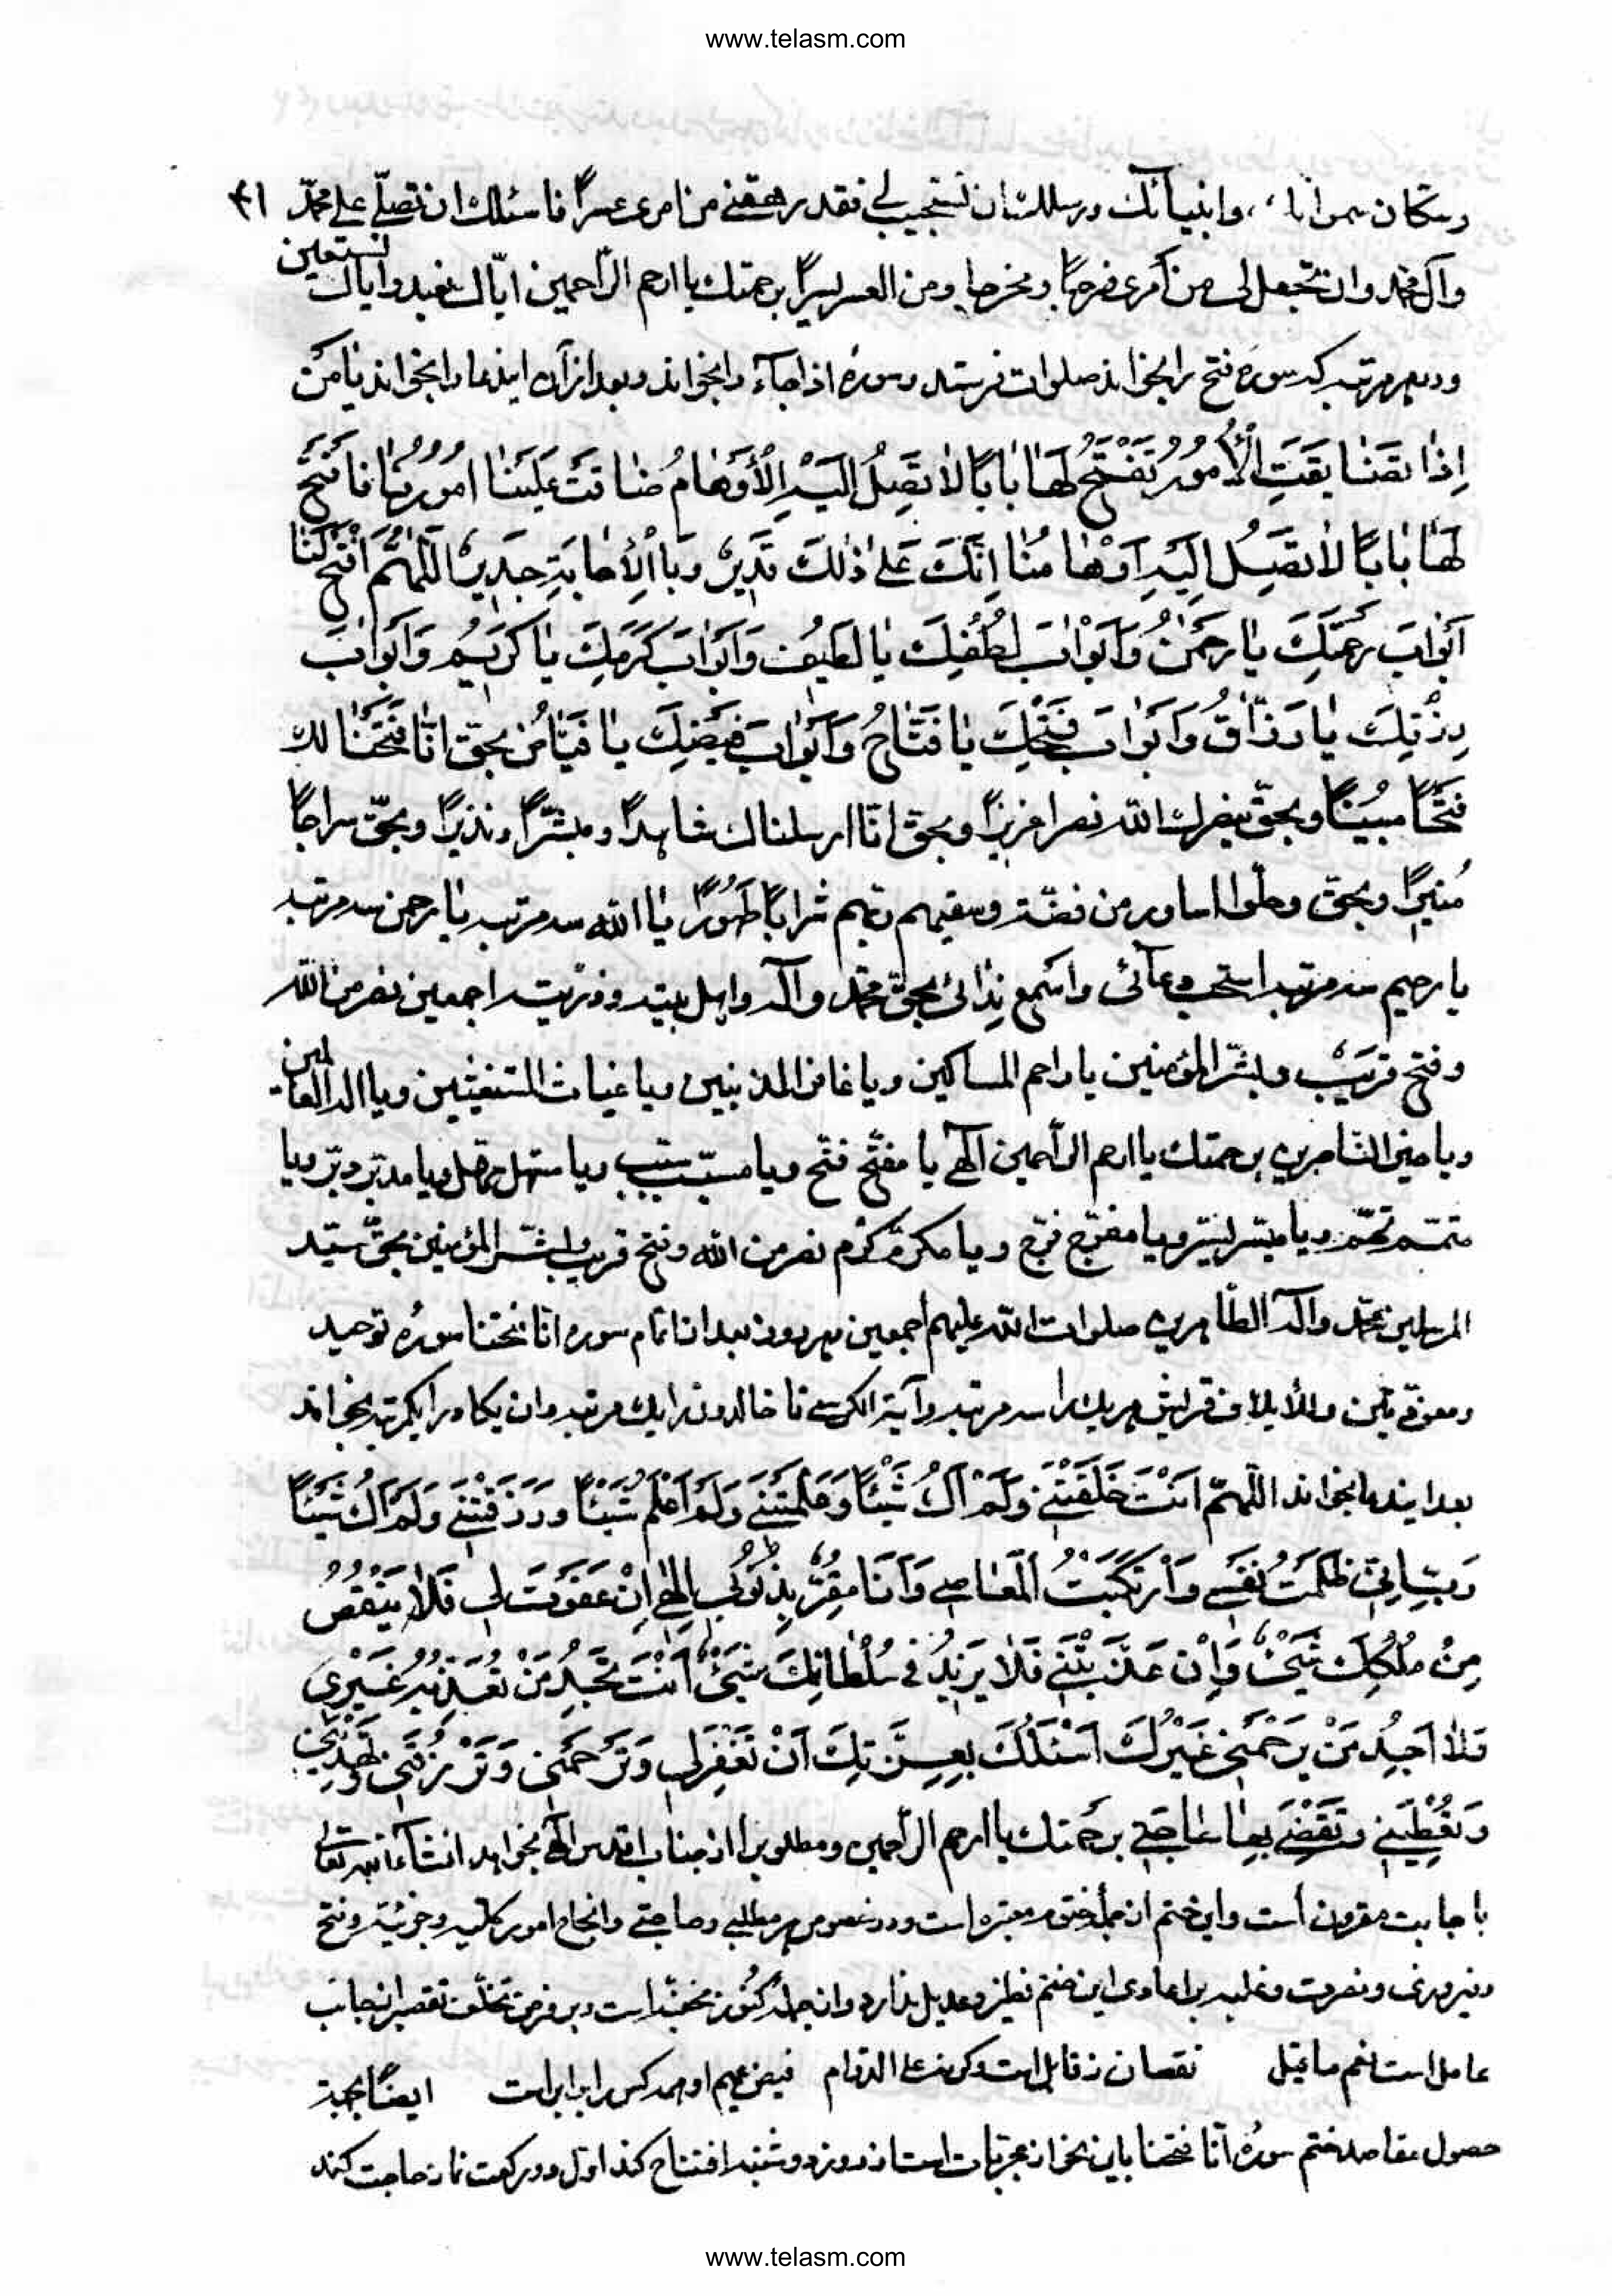 www.telasm.com
۴۱
وسکان سمواتک وانبیائک ورسلک ان تستجیب لی فقد رهقنی من امری عسراً فاسئلک ان تصلّی علی محمّد
وآل محمد وان تجعل لی من أمری فرجاً ومخرجا ومن العسر یسراً برحمتک یا ارحم الرّاحمین ایّاک نعبد وایاک نستعین
ودر هر مرتبه که سوره فتح را بخواند صلوات فرستد وسورهٔ اذا جاء را بخواند وبعد از آن ایندعا را بخواند یا مَن
اِذٰا تَضٰایَقَتِ الْاُمُورُ تَفْتَحُ لَهٰا بٰابًا لاٰ تَصِلُ اِلَیْهِ الْأَوْهٰامُ ضٰاقَتْ عَلَیْنٰا اُمُورُنٰا فَافْتَحْ
لَهٰا بٰابًا لاٰ تَصِلُ اِلَیْهِ اَوْهٰامُنٰا اِنَّکَ عَلیٰ ذٰلِکَ قَدِیرٌ وَبِاالْاِجٰابَةِ جَدِیرٌ اَللّٰهُمَّ افْتَحْ لَنٰا
اَبْوٰابَ رَحْمَتِکَ یٰا رَحْمٰنُ وَاَبْوٰابَ لُطْفِکَ یٰا لَطیِفُ وَاَبْوٰابَ کَرَمِکَ یٰا کَرِیمُ وَاَبْوٰابَ
رِزْقِکَ یٰا رَزّٰاقُ وَاَبْوٰابَ فَتْحِکَ یٰا فَتّٰاحُ وَاَبْوٰابَ فَیْضِکَ یٰا فَیّٰاضُ بحق انّٰا فَتَحْنٰا لک
فَتْحًا مُبینًا وبحقّ ینصرک الله نصرا عزیزاً وبحق انّا ارسلناک شاهداً ومبشّراً ونذیراً وبحقّ سراجاً
مُنیراً وبحق وحلّوا اساور من فضّة وسقیهم ربّهم شراباً طَهُوراً یٰا الله سه مرتبه یٰا رحمن سه مرتبه
یا رحیم سه مرتبه استجب دعآئی واسمع نِدٰائی بحقّ محمّد وآله واهل بیته وذرّیته اجمعین نصر من الله
وفتح قریبٌ وبشّر المؤمنین یا راحم المساکین ویا غافر المذنبین ویا غیاث المستغیثین ویا اله العالمین
ویا خیر النّاصرین برحمتک یا ارحم الرّاحمین الٓهی یا مفتّح فتّح ویا مسبّب سبّب ویا مسهّل سهّل ویا مدبّر دبّر ویا
متمّم تمّم ویا میسّر یسّر ویا مفرّج فرّج ویا مکرّم کرّم نصر من الله وفتح قریب وبشّر المؤمنین بحقّ سیّد
المرسلین محمّد وآله الطّاهرین صلوات الله علیهم اجمعین وهر روز بعد از اتمام سوره انّا فتحنا سورهٔ توحید
ومعوّذتین ولأیلاف قریش هر یک را سه مرتبه وآیة الکرسی تا خالدون را یک مرتبه وان یکاد را یکمرتبه بخواند
بعد ایندعا بخواند اللّهمّ اَنْتَ خَلَقْتَنی وَلَمْ اَکُ شَیْئًا وَعَلَّمْتَنی وَلَمْ اَعْلَمْ شَیْئًا وَرَزَقْتَنی وَلَمْ اَکُ شَیْئًا
رَبِّ اِنّی ظَلَمْتُ نَفْسی وَارْتَکَبْتُ الْمَعٰاصی وَاَنَا مُقِرٌّ بِذُنُوبی اِلٰهی اِنْ عَفَوْتَ لی فَلاٰ یَنْقُصُ
مِنْ مُلْکِکَ شَیْئٌ وَاِنْ عَذَّبْتَنی فَلاٰ یَزیدُ فی سُلْطٰانِکَ شَیْئٌ اَنْتَ تَجِدُ مَنْ تُعَذِّبُهُ غَیْری
فَلاٰ اَجِدُ مَنْ یَرْحَمُنی غَیْرُکَ اَسْئَلُکَ بِعِزَّتِکَ اَنْ تَغْفِرَ لی وَتَرْحَمَنی وَتَرْزُقَنی وَتَهْدِیَنی
وَتُعْطِیَنی وَتَقْضِیَ بِهٰا حٰاجَتی برحمتک یا ارحم الرّاحمین ومطلوب را از جناب اقدس الٓهی بخواهد انشآءالله تعالی
با جابت مقرون است واین ختم از جملهٔ ختوم معتبره است ودر خصوص هر مطلبی وحاجتی وانجاح امور کلّیه وجزئیّه وفتح
وفیروزی ونصرت وغلبه بر اعادی این ختم نظیر وعدیل ندارد واز جملهٔ کنوز مخفیّه است وبر فرض تخلّف تقصیر از جانب
عامل است نعم ما قیل نقصان ز قابل است وگرنه علی الدّوام فیض عمیم او همه کس را برابر است ایضاً بجهة
حصول مقاصد ختم سورهٔ انّا فتحنا باین نحو از مجرّبات است از روز دوشنبه افتتاح کند اوّل دو رکعت نماز حاجت کند
www.telasm.com